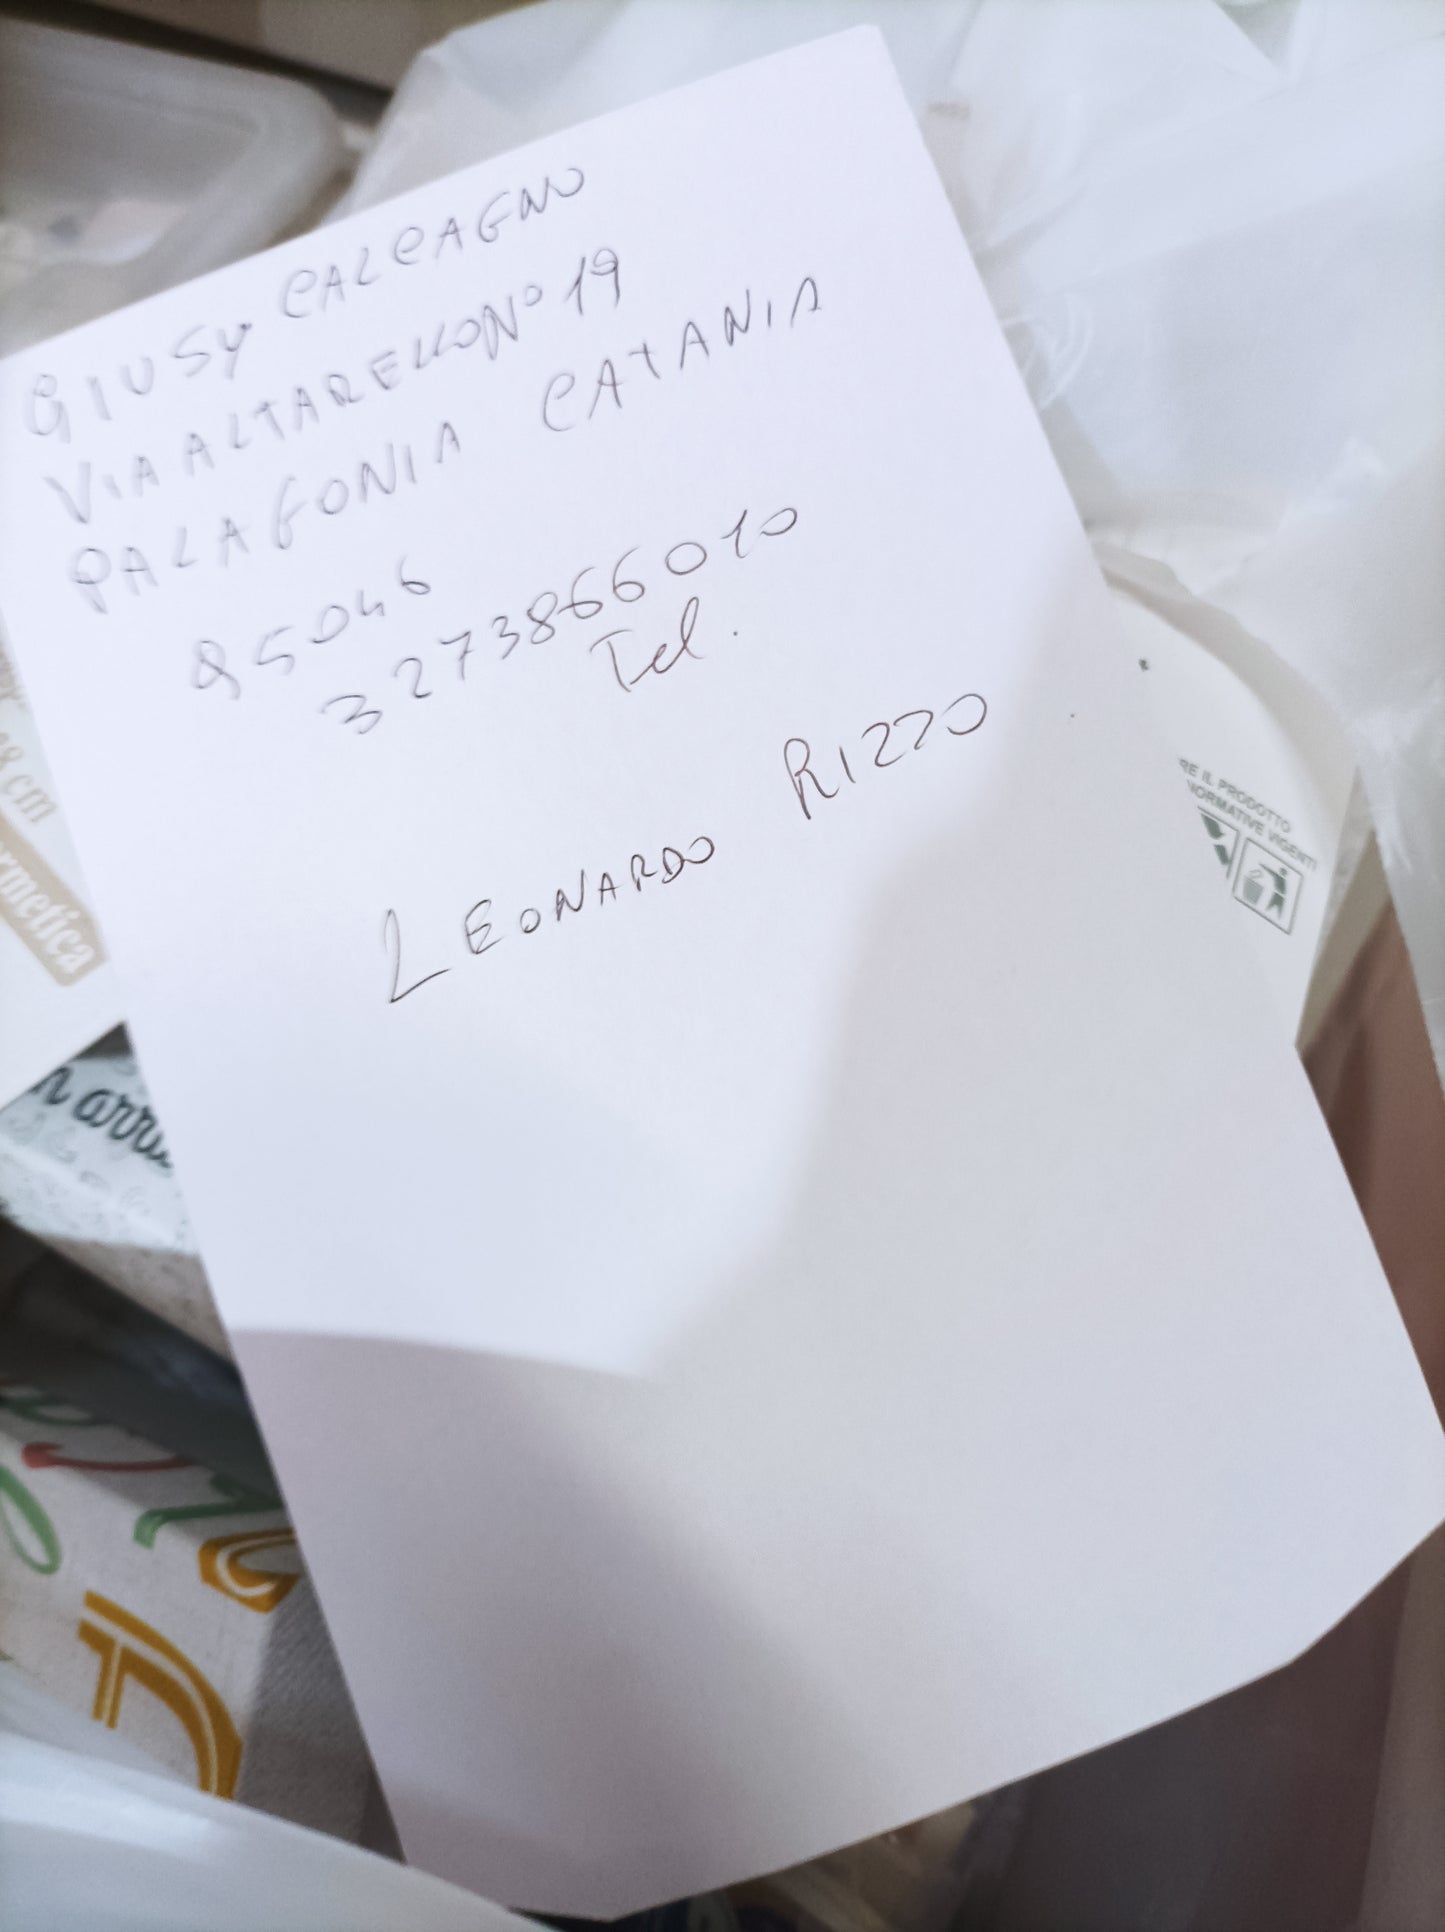 GIUSY CALCAGNO
VIA ALTARELLO N° 19
PALAGONIA CATANIA
95046
3273866010
Tel.
LEONARDO RIZZO
RE IL PRODOTTO
NORMATIVE VIGENTI
8 cm
rmetica
n arri